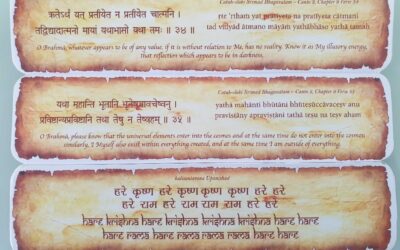 Catuḥ-śloki Śrīmad Bhagavatam ~ Canto 2, Chapter 9 Verse 34
ऋतेऽर्थं यत् प्रतीयेत न प्रतीयेत चात्मनि ।
तद्विद्यादात्मनो मायां यथाभासो यथा तमः ॥ ३४ ॥
ṛte 'rthaṁ yat pratīyeta na pratīyeta cātmani
tad vidyād ātmano māyāṁ yathābhāso yathā tamaḥ
O Brahmā, whatever appears to be of any value, if it is without relation to Me, has no reality. Know it as My illusory energy,
that reflection which appears to be in darkness.
Catuḥ-śloki Śrīmad Bhagavatam ~ Canto 2, Chapter 9 Verse 35
यथा महान्ति भूतानि भूतेषूच्चावचेष्वनु ।
प्रविष्टान्यप्रविष्टानि तथा तेषु न तेष्वहम् ॥ ३५ ॥
yathā mahānti bhūtāni bhūteṣūccāvaceṣv anu
praviṣṭāny apraviṣṭāni tathā teṣu na teṣv aham
O Brahmā, please know that the universal elements enter into the cosmos and at the same time do not enter into the cosmos;
similarly, I Myself also exist within everything created, and at the same time I am outside of everything.
kalisantarana Upanishad
हरे कृष्ण हरे कृष्ण कृष्ण कृष्ण हरे हरे
हरे राम हरे राम राम राम हरे हरे
hare krishna hare krishna krishna krishna hare hare
hare rama hare rama rama rama hare hare